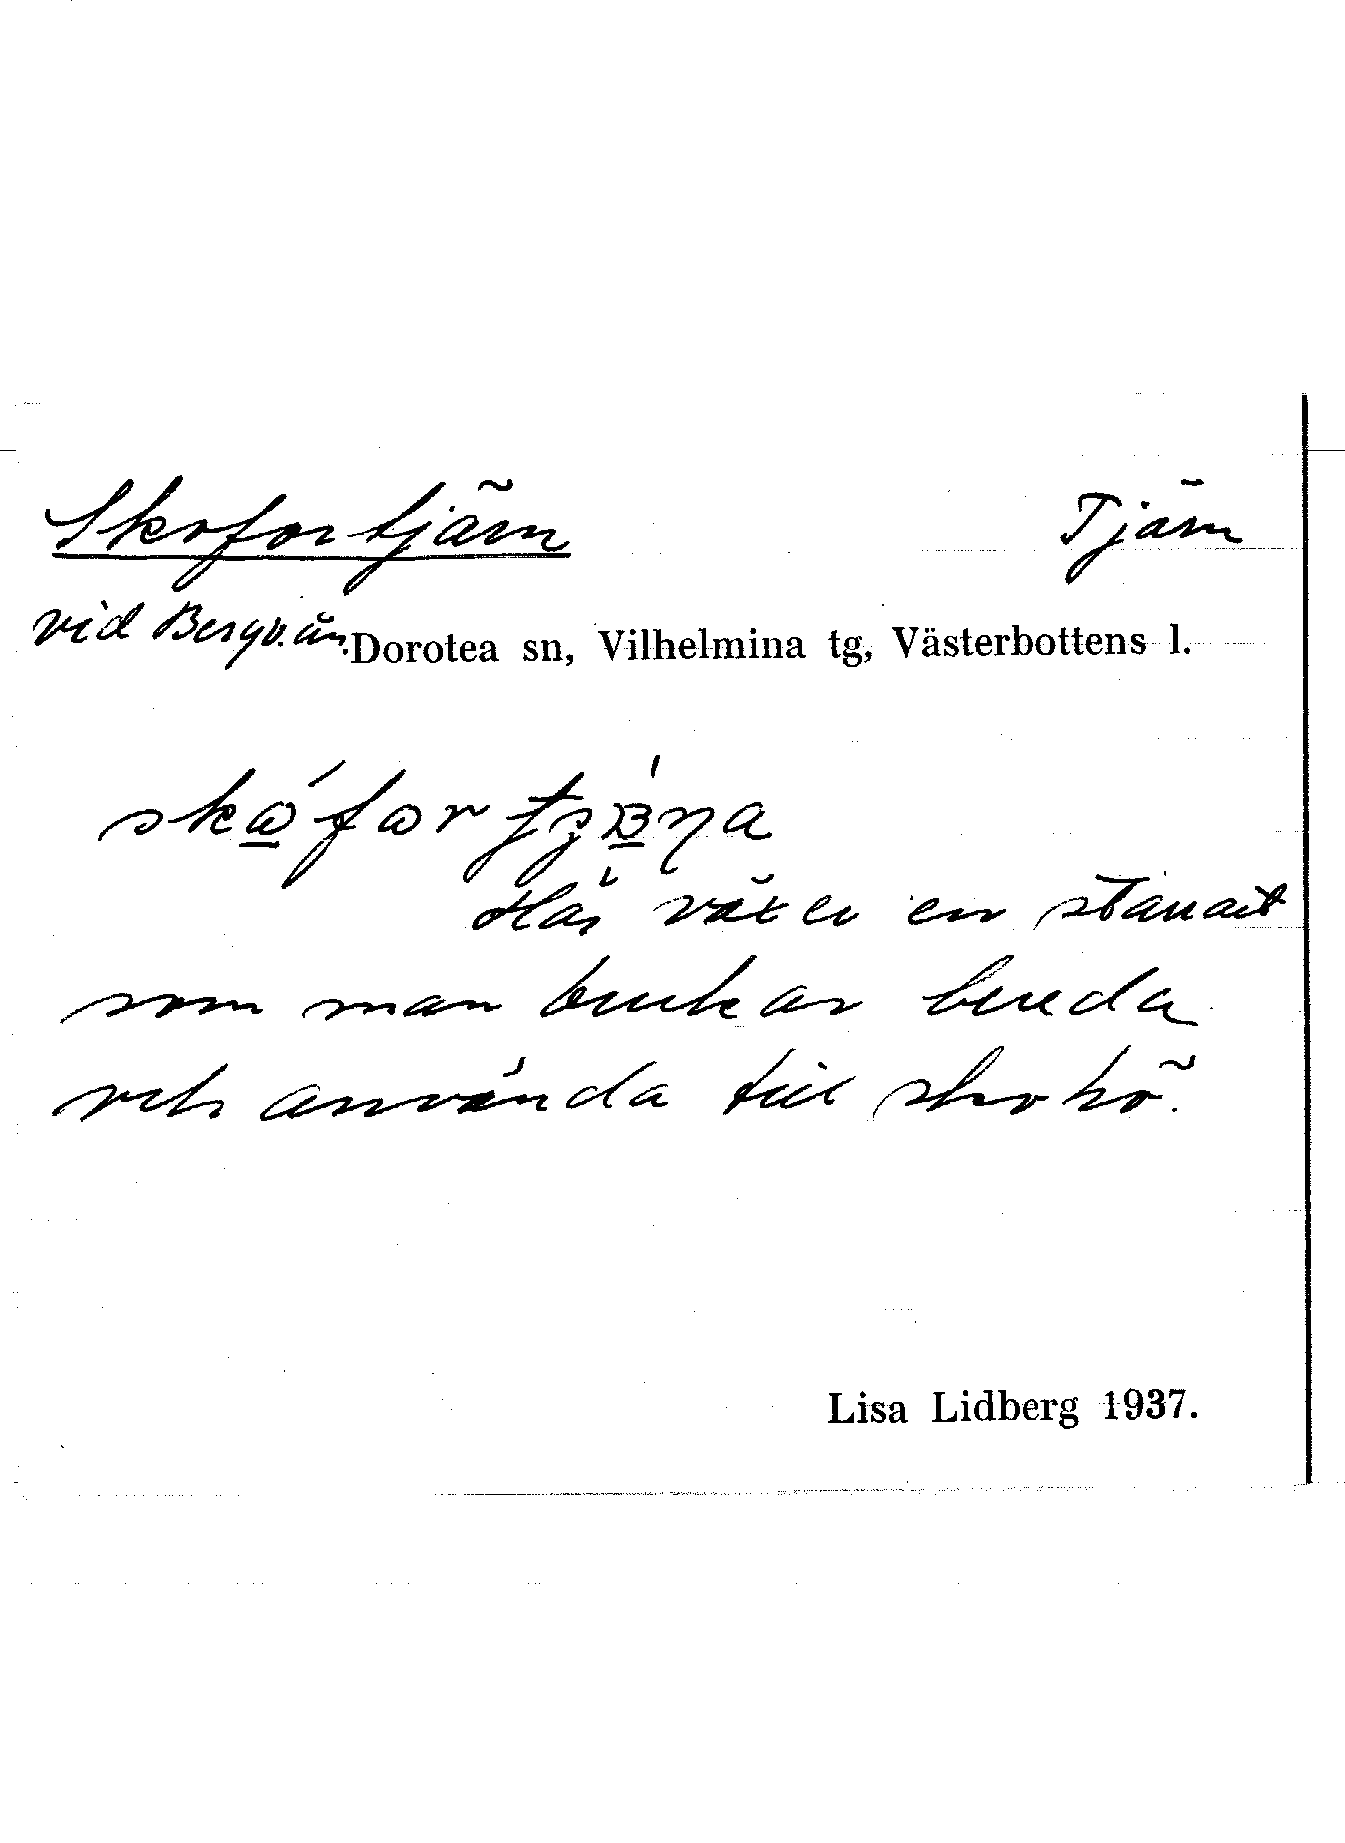 Skofortjärn Tjärn
vid Bergv.ån. Dorotea sn, Vilhelmina tg, Västerbottens l.
Här växer en starrart
som man brukar bereda
och använda till skohö.
Lisa Lidberg 1937.